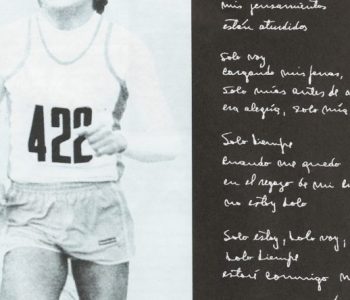 422
mis pensamientos
están aturdidos
Solo voy
cargando mis penas,
Solo mías antes de
era alegría, solo
Solo siempre
Cuando me quedo
en el regazo de mi
no estoy solo
Solo estoy, solo voy,
solo siempre
estaré conmigo